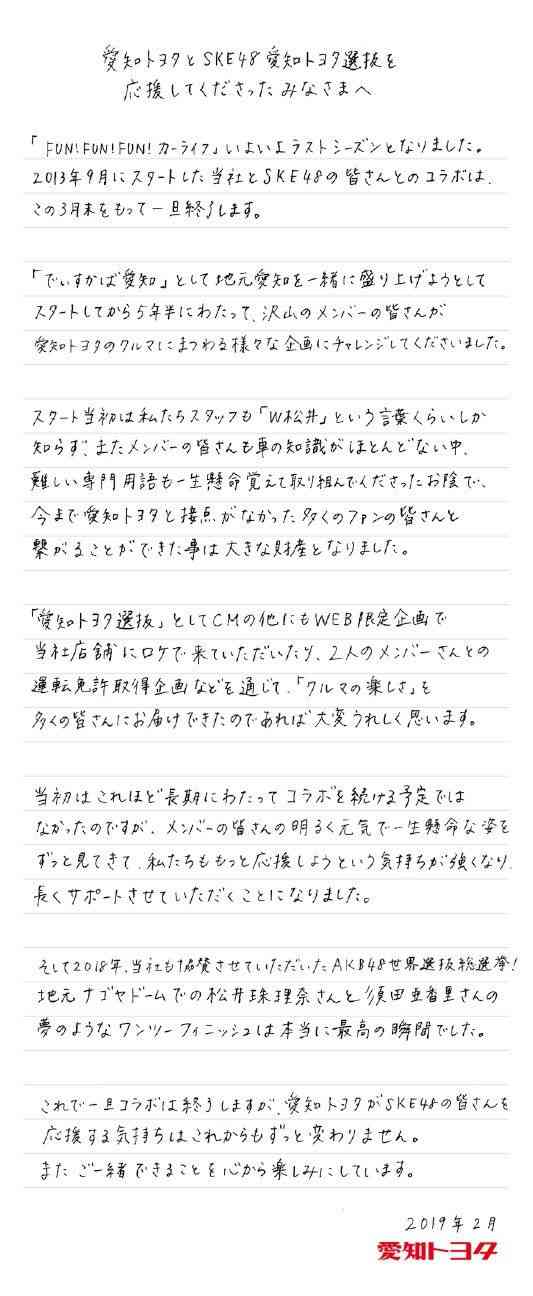 愛知トヨタとSKE48愛知トヨタ選抜を
応援してくださったみなさまへ
「FUN!FUN!FUN!カーライフ」いよいよラストシーズンとなりました。
2013年9月にスタートした当社とSKE48の皆さんとのコラボは、
この3月末をもって一旦終了します。
「でぃすかば愛知」として地元愛知を一緒に盛り上げようとして
スタートしてから5年半にわたって、沢山のメンバーの皆さんが
愛知トヨタのクルマにまつわる様々な企画にチャレンジしてくださいました。
スタート当初は私たちスタッフも「W松井」という言葉くらいしか
知らず、またメンバーの皆さんも車の知識がほとんどない中、
難しい専門用語も一生懸命覚えて取り組んでくださったお陰で、
今まで愛知トヨタと接点がなかった多くのファンの皆さんと
繋がることができた事は大きな財産となりました。
「愛知トヨタ選抜」としてCMの他にもWEB限定企画で
当社店舗にロケで来ていただいたり、2人のメンバーさんとの
運転免許取得企画などを通じて、「クルマの楽しさ」を
多くの皆さんにお届けできたのであれば大変うれしく思います。
当初はこれほど長期にわたってコラボを続ける予定では
なかったのですが、メンバーの皆さんの明るく元気で一生懸命な姿を
ずっと見てきて、私たちももっと応援しようという気持ちが強くなり、
長くサポートさせていただくことになりました。
そして2018年、当社も協賛させていただいたAKB48世界選抜総選挙!
地元ナゴヤドームでの松井珠理奈さんと須田亜香里さんの
夢のようなワンツーフィニッシュは本当に最高の瞬間でした。
これで一旦コラボは終了しますが、愛知トヨタがSKE48の皆さんを
応援する気持ちはこれからもずっと変わりません。
またご一緒できることを心から楽しみにしています。
2019年2月
愛知トヨタ